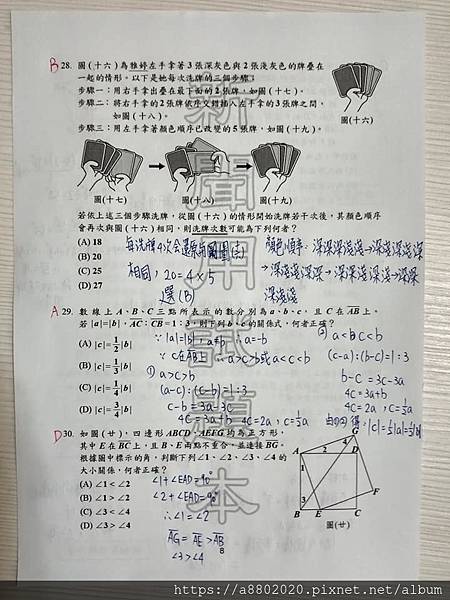 B 28. 圖(十六)為雅婷左手拿著3張深灰色與2張淺灰色的牌疊在
一起的情形。以下是她每次洗牌的三個步驟:
步驟一:用右手拿出疊在最下面的2張牌,如圖(十七)。
步驟二:將右手拿的2張牌依序交錯插入左手拿的3張牌之間,
如圖(十八)。
步驟三:用左手拿著顏色順序已改變的5張牌,如圖(十九)。
圖(十六)
圖(十七) 圖(十八) 圖(十九)
若依上述三個步驟洗牌,從圖(十六)的情形開始洗牌若干次後,其顏色順序
會再次與圖(十六)相同,則洗牌次數可能為下列何者?
(A) 18
(B) 20
(C) 25
(D) 27
每洗牌4次會
相同,20=4×5
選(B)
顏色順序:深深深淺淺→深淺深淺深
深淺淺
A 29. 數線上A、B、C三點所表示的數分別為a、b、c,且C在AB上。
若|a|=|b|,AC:CB=1:3,則下列b、c的關係式,何者正確?
(A) |c|=1/2|b|
(B) |c|=1/3|b|
(C) |c|=1/4|b|
(D) |c|=3/4|b|
∵|a|=|b|, a≠b ∴a=-b
∵C在AB上 ∴a>c>b或a<c<b
① a>c>b
(a-c):(c-b)=1:3
c-b=3a-3c
4c=3a+b 4c=2a, c=1/2a
② a<c<b
(c-a):(b-c)=1:3
b-c=3c-3a
4c=3a+b
4c=2a, c=1/2a
由①②得,|c|=1/2|a|=1/2|b|
D 30. 如圖(廿),四邊形ABCD、AEFG均為正方形,
其中E在BC上,且B、E兩點不重合,並連接BG。
根據圖中標示的角,判斷下列∠1、∠2、∠3、∠4的
大小關係,何者正確?
(A) ∠1<∠2
(B) ∠1>∠2
(C) ∠3<∠4
(D) ∠3>∠4
∠1+∠EAD=90°
∠2+∠EAD=90°
∴∠1=∠2
AG=AE>AB
∠3>∠4
G
A 2 4 D
1
F
3
B E C
圖(廿)
8
新聞用試題本
https://a8802020.pixnet.net/album